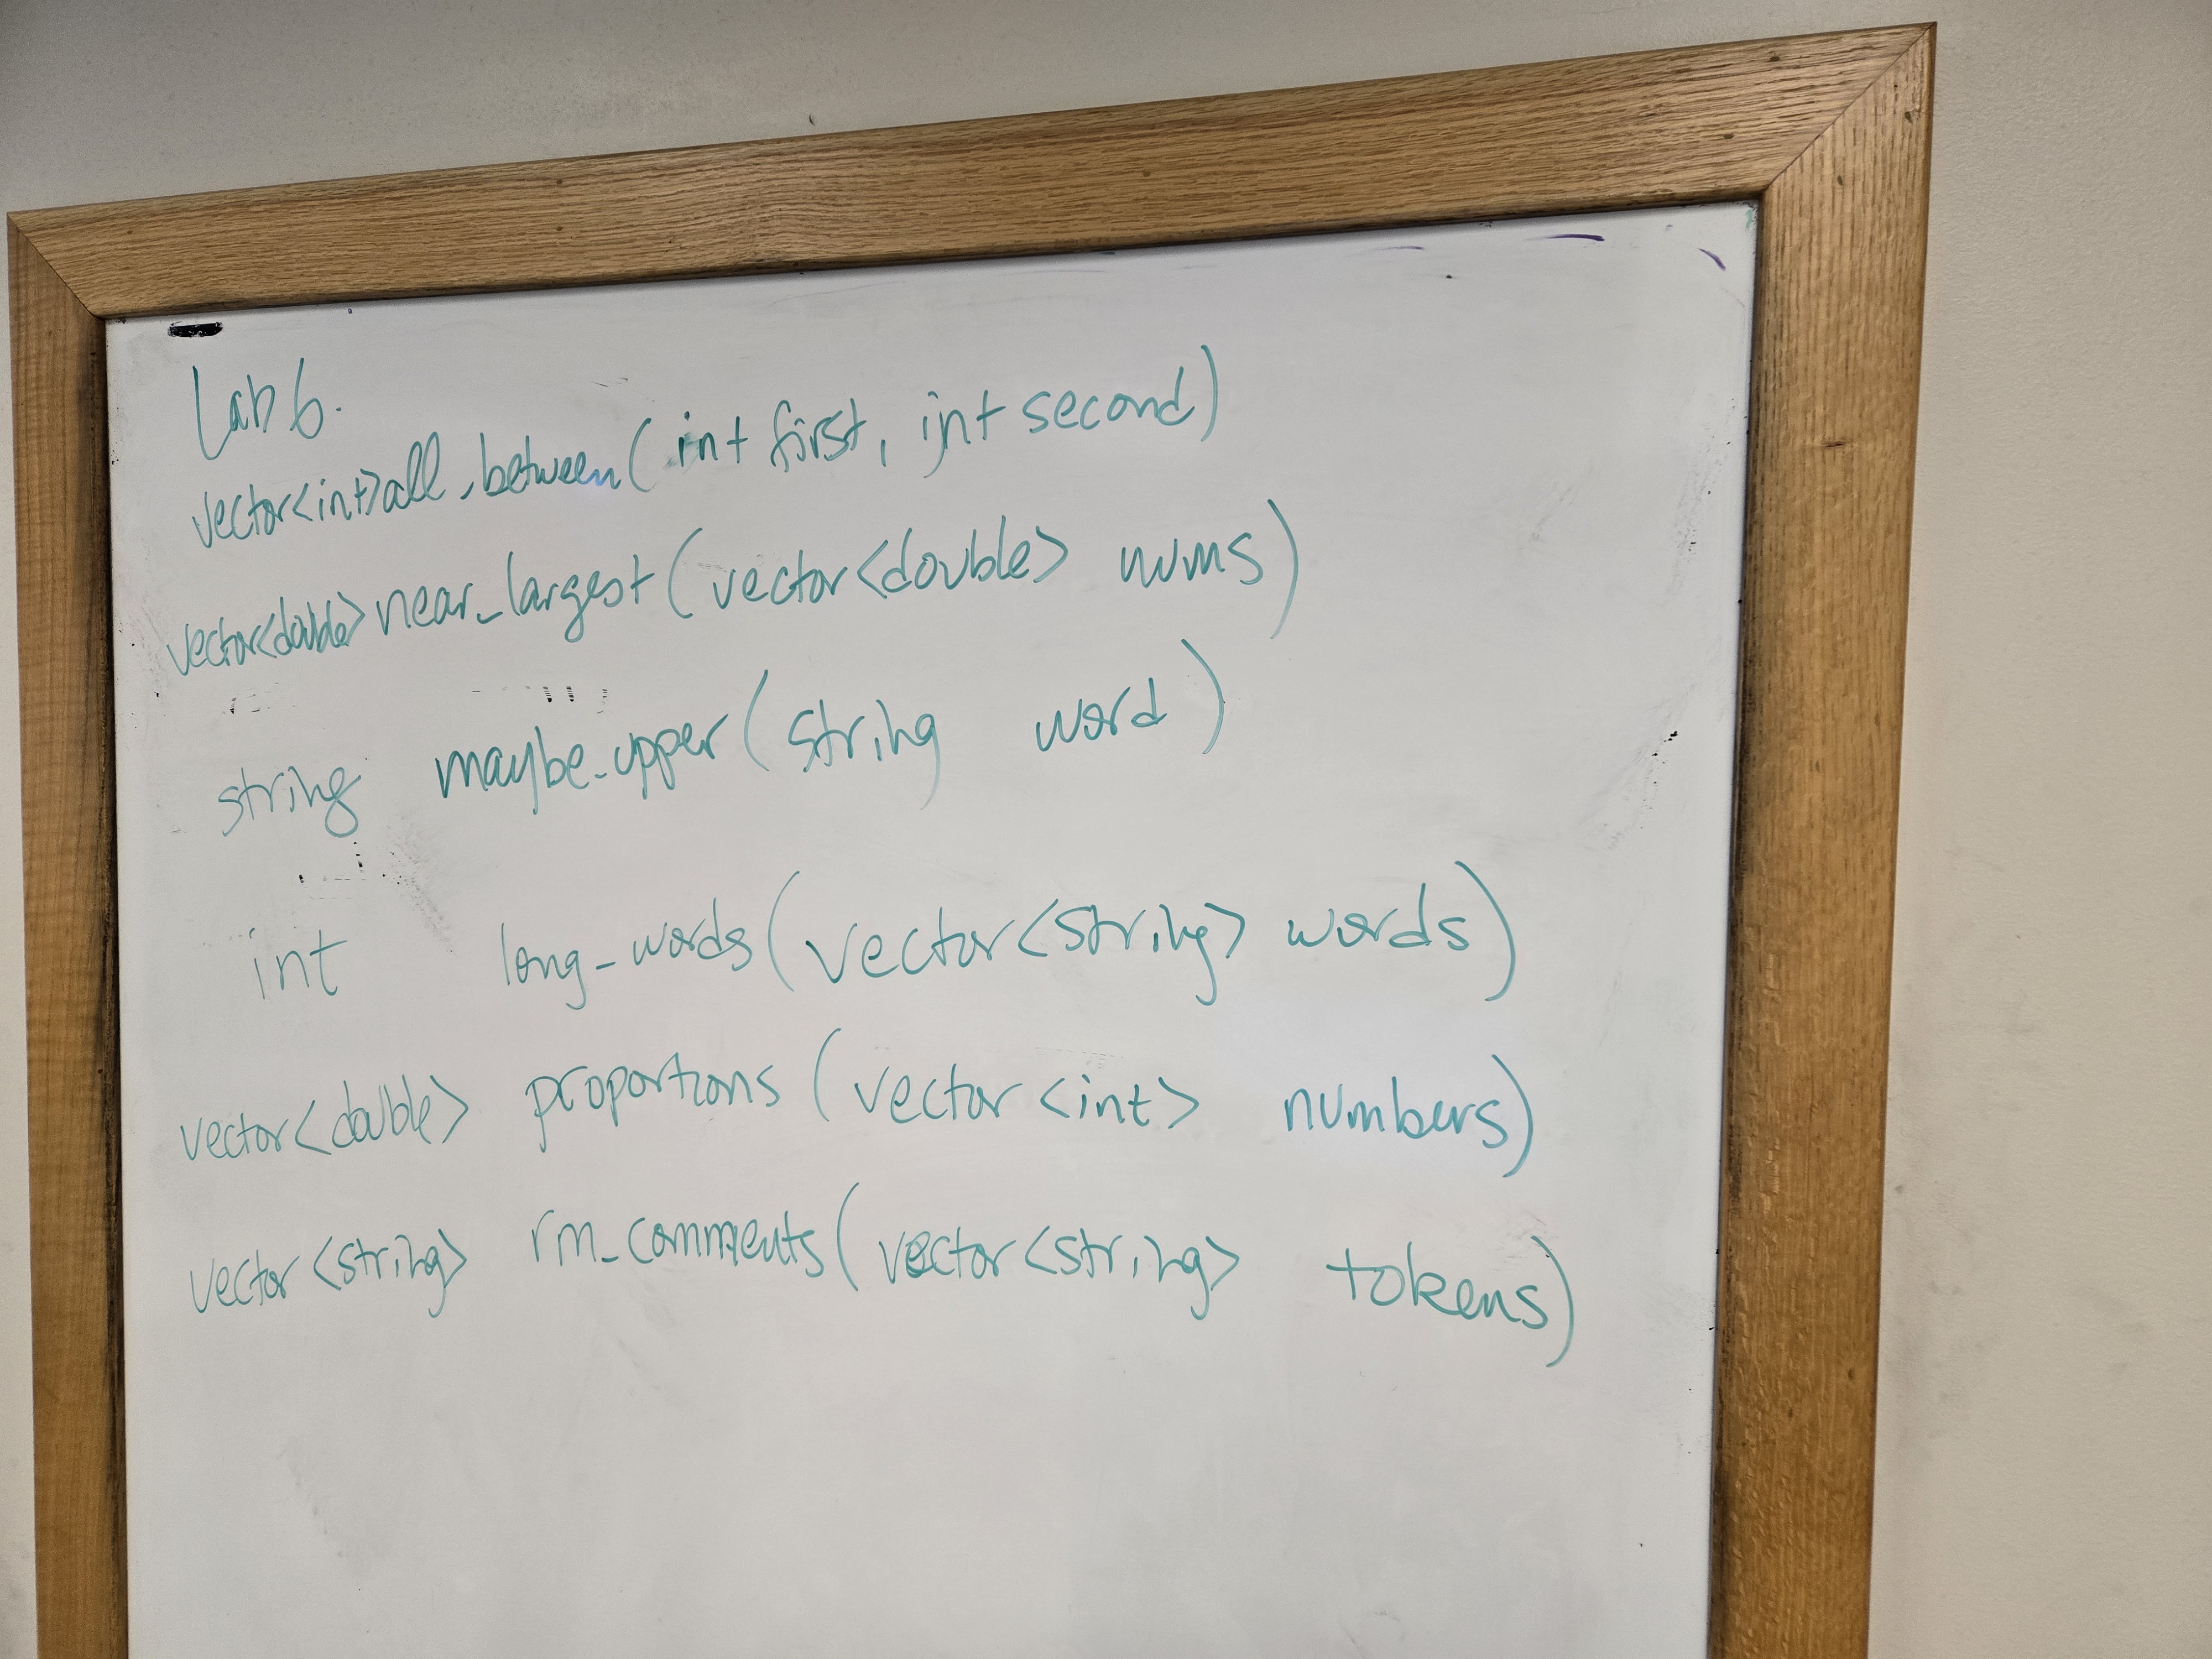 Lab 6.
vector<int> all_between( int first, int second)
vector<double> near_largest (vector<double> nums)
string maybe_upper (string word)
int long_words (vector<string> words)
vector<double> proportions (vector <int> numbers)
vector <string> rm_comments (vector <string> tokens)